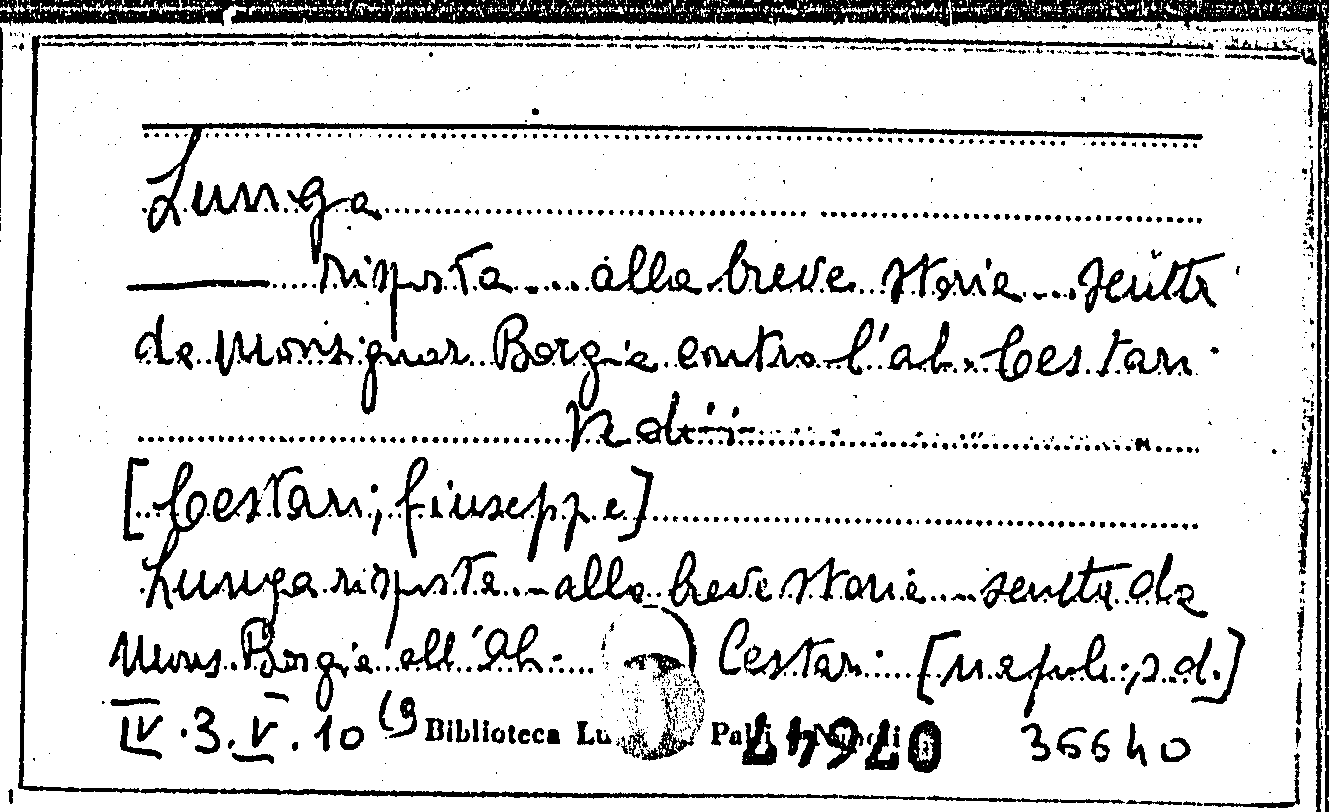 Lunga
—— risposta ... alla breve storia ... scritta
da Monsignor Borgia contro l'ab. Cestari.
Vedi:
[Cestari, Giuseppe]
Lunga risposta ... alla breve storia ... scritta da
Mons. Borgia all'Ab. Cestari. [Napoli, s.d.]
IV.3.V.10 (9 Biblioteca Lu Pal 07647 36640